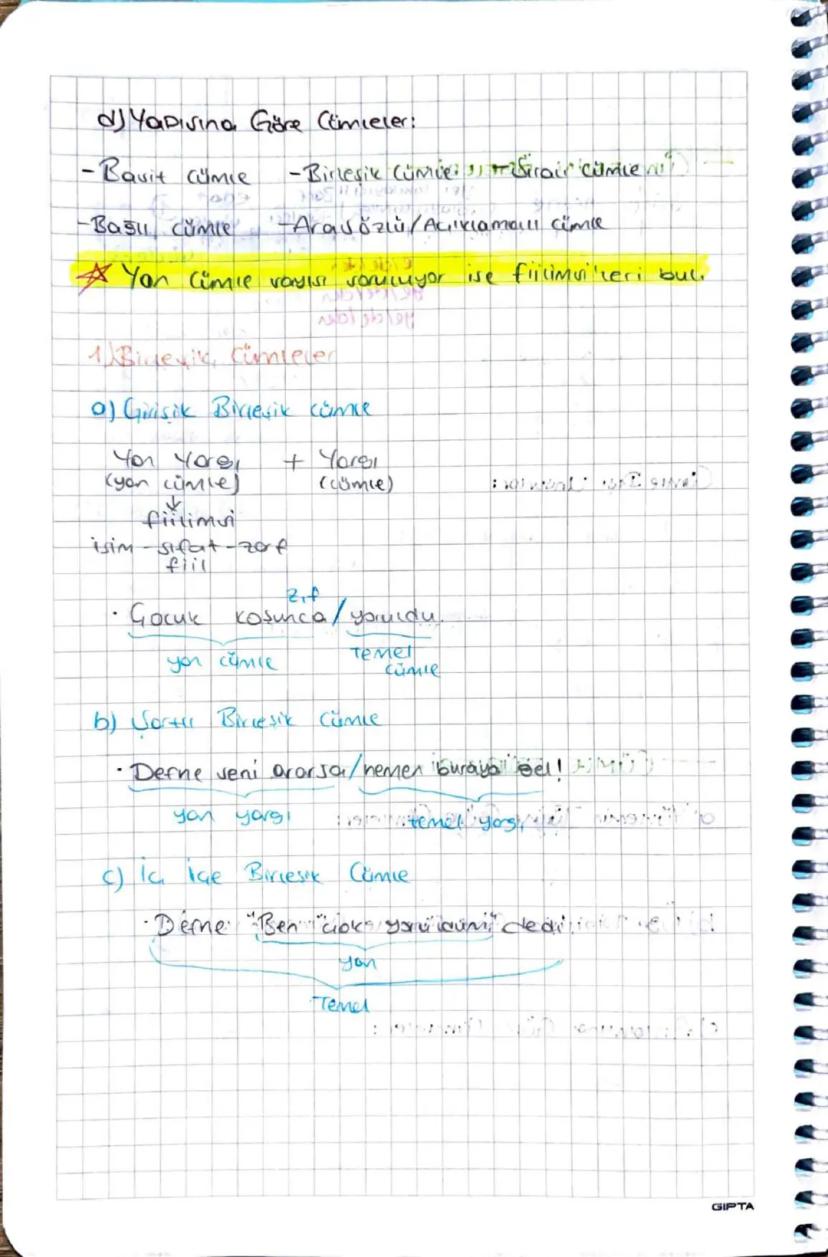 d) Yapısına Göre Cümleler:
- Basit cümle - Birleşik cümle - Sıralı cümle
- Bağlı cümle - Arasözlü/Açıklamalı cümle
☆ Yan cümle sayısı soruluyor ise fiilimsi'leri bul.
1) Birleşik Cümleler
a) Girişik Birleşik cümle
Yan Yargı + Yargı
(yan cümle) (cümle)
↓
fiilimsi
isim - sıfat - zarf
fiil
z.f
· Çocuk koşunca / yoruldu.
yan cümle Temel
cümle
b) Şartlı Birleşik Cümle
· Defne seni ararsa / hemen buraya gel!
yan yargı temel yargı
c) İç İçe Birleşik Cümle
· Defne "Ben çok yoruldum" dedi.
yan
Temel
GIPTA